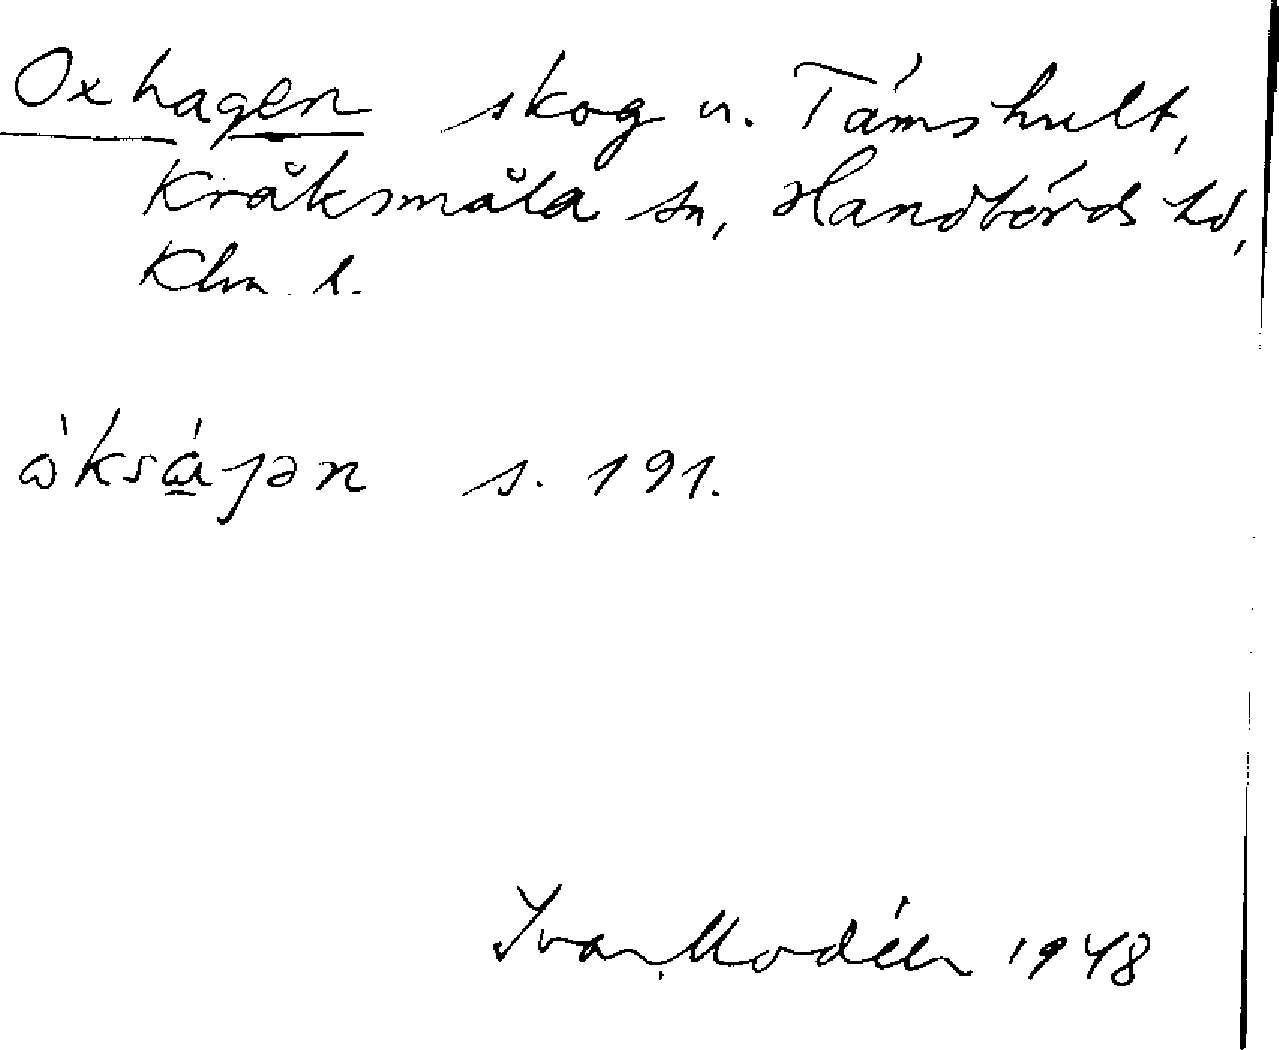 Oxhagen skog u. Támshult,
Kråksmåla sn, Handbörds hd,
Klm. l.
òksájən s. 191.
Ivar Modéer 1948